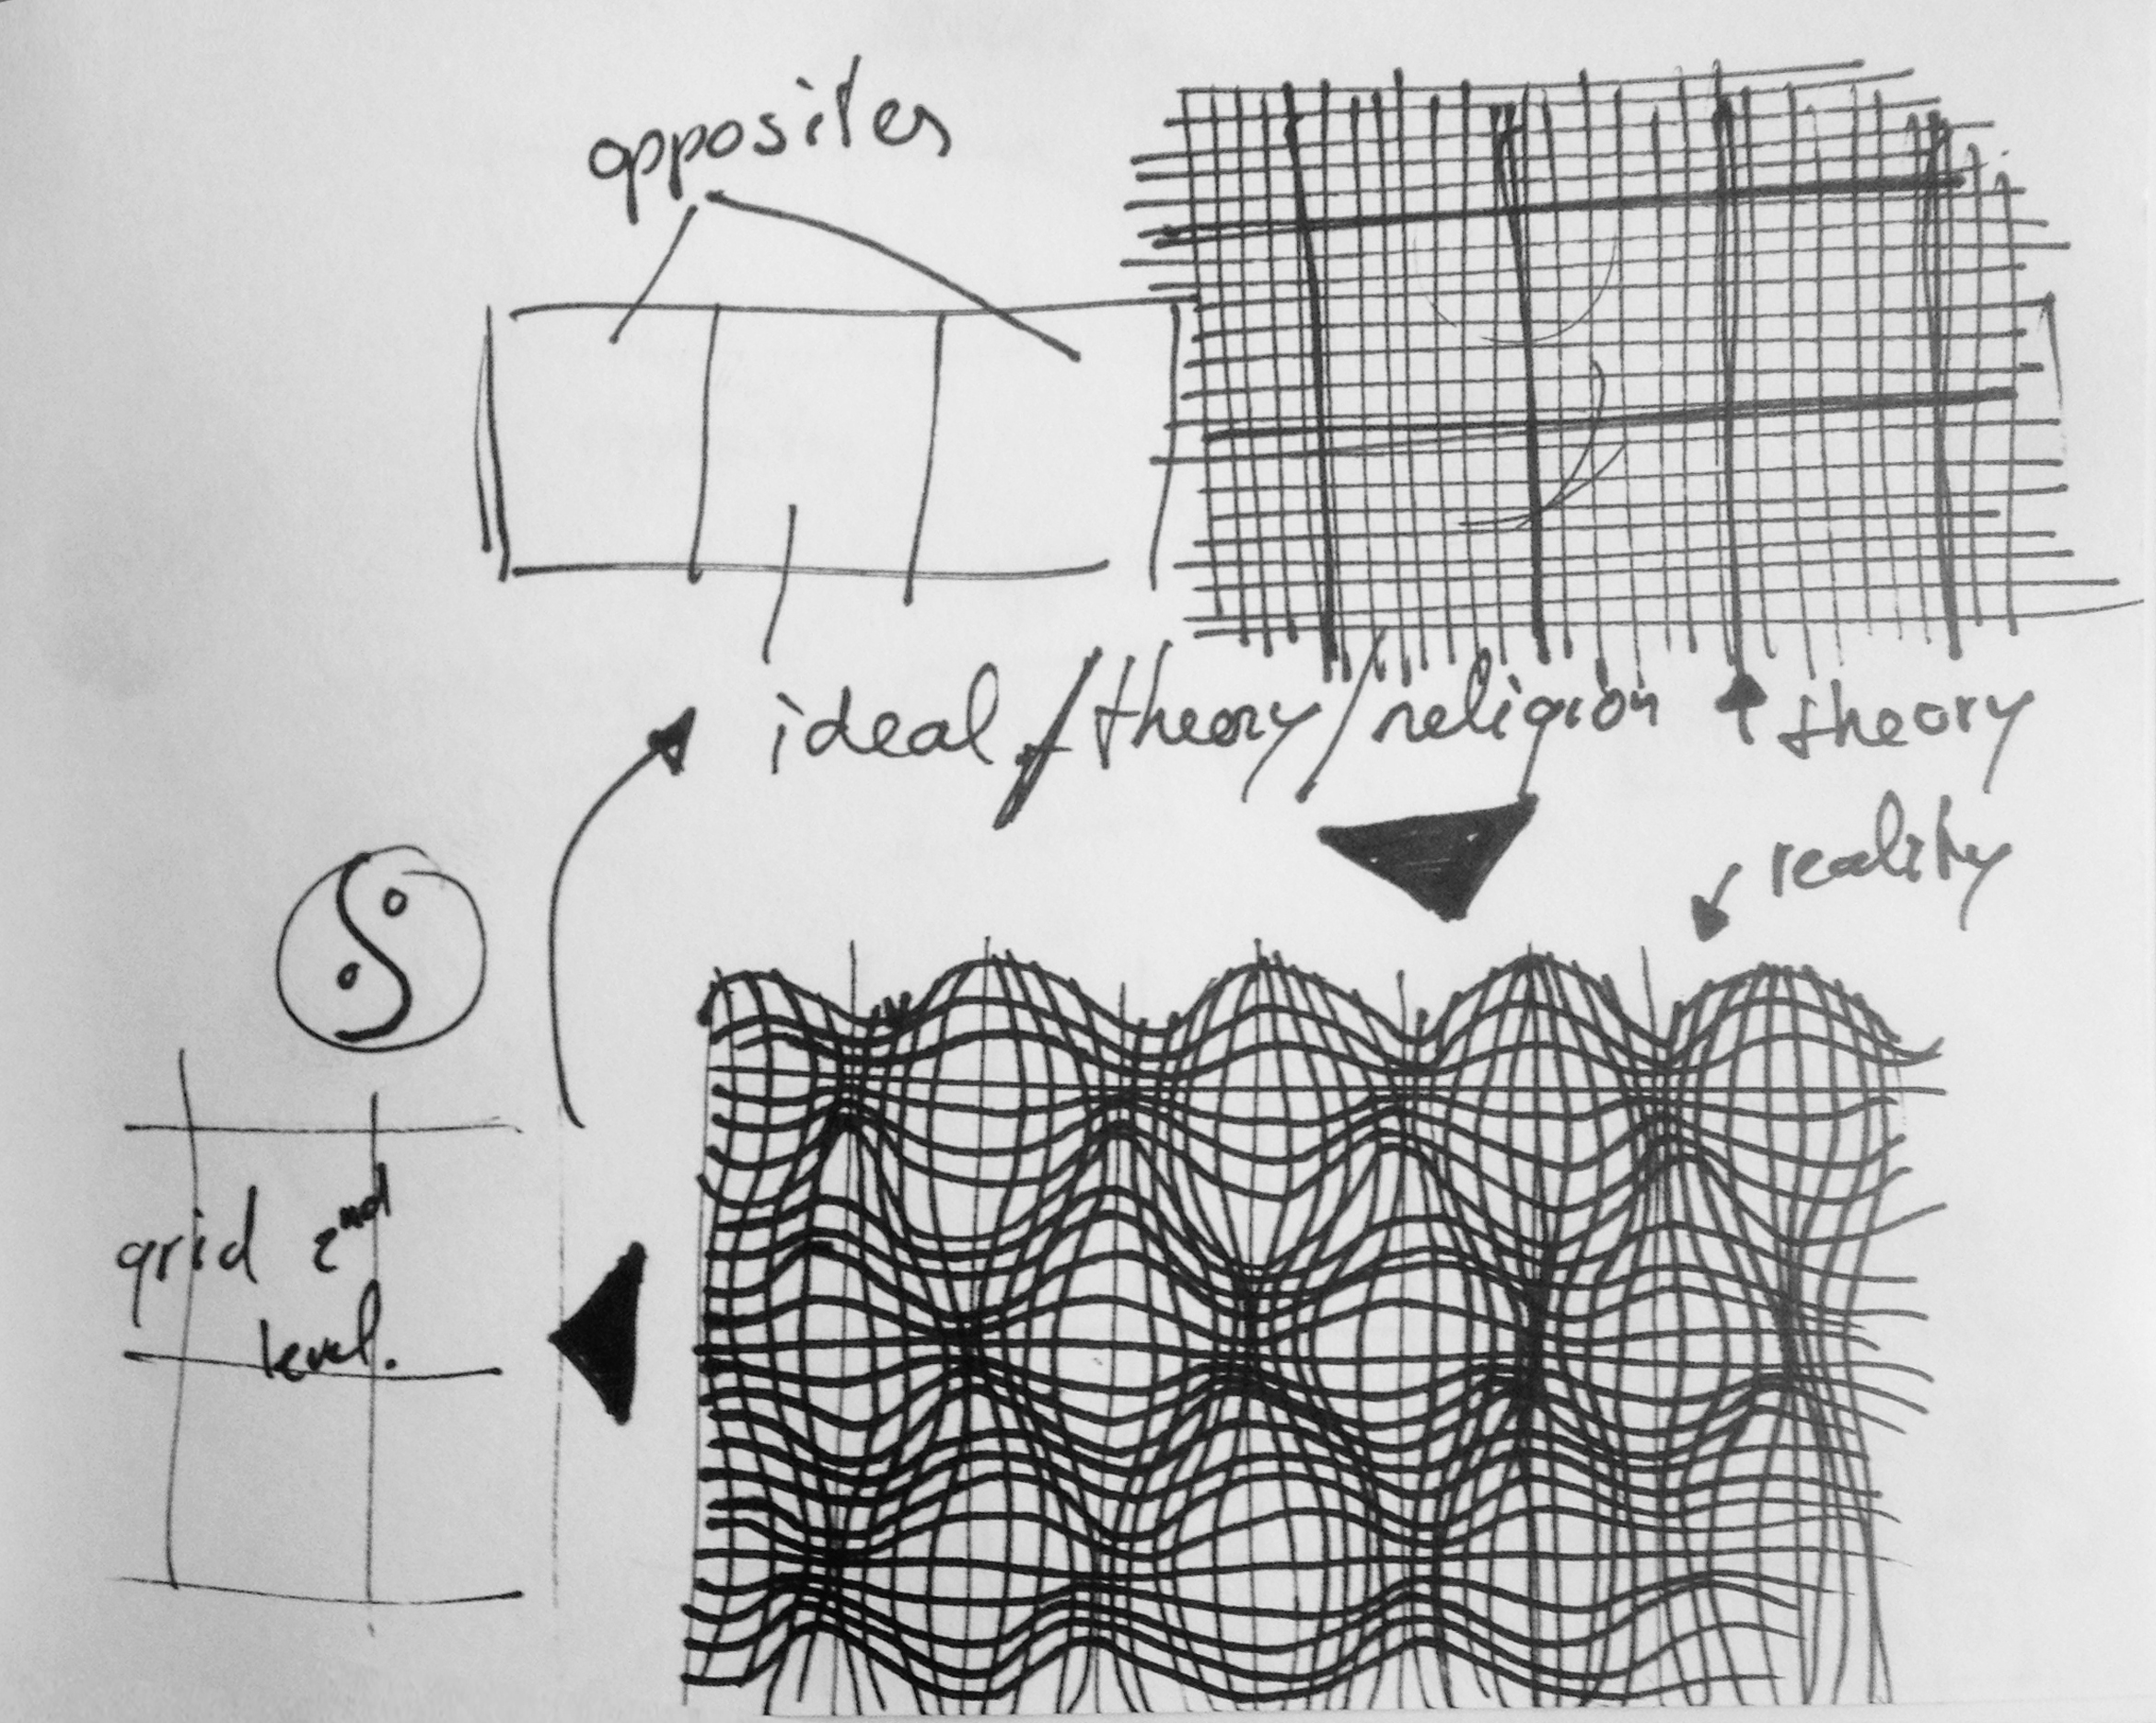 opposites
ideal / theory / religion
theory
reality
grid 2nd
level.